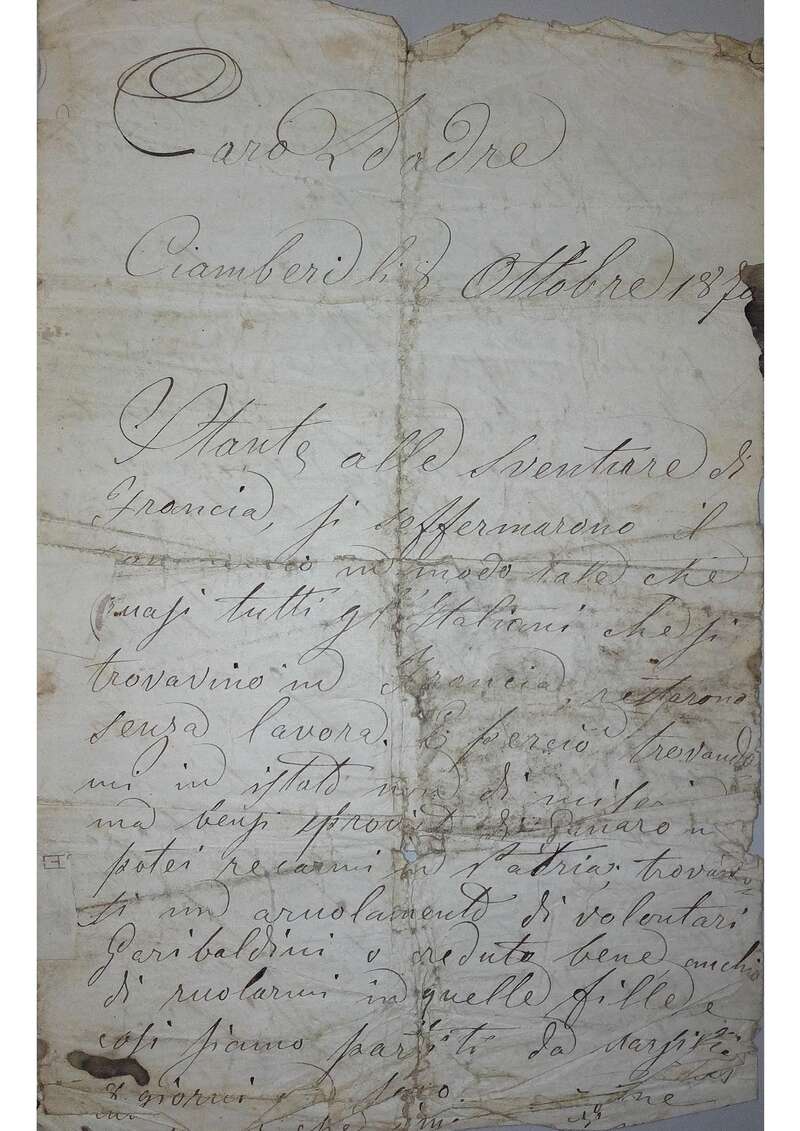 Caro Padre
Ciamberi li 8 Ottobre 1870
Stante alle sventure di
Francia, si seffermarono il
in modo tale che
quasi tutti gl'Italiani che si
trovavino in Francia, restarono
senza lavora. E perciò trovando
mi in istato non di
ma bensi di danaro n
potei recarmi in Patria; trovando
si un aruolamento di volontari
Garibaldini o creduto bene anchio
di ruolarmi in quelle fille e
cosi siamo partiti da
8 giorni
che